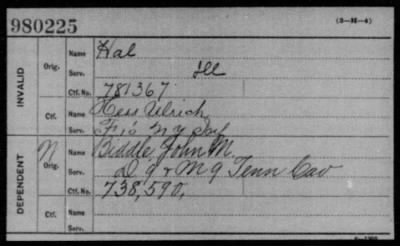 980225 (3-M-4)
INVALID
Orig. Name Hal
Serv. Ill
Ctf. No. 781367
Ctf. Name Hess Ulrich
Serv. F 10 N Y Inf
DEPENDENT
N Orig. Name Biddle, John M.
Serv. D 9 & M 9 Tenn Cav
Ctf. No. 738,590,
Ctf. Name
Serv.